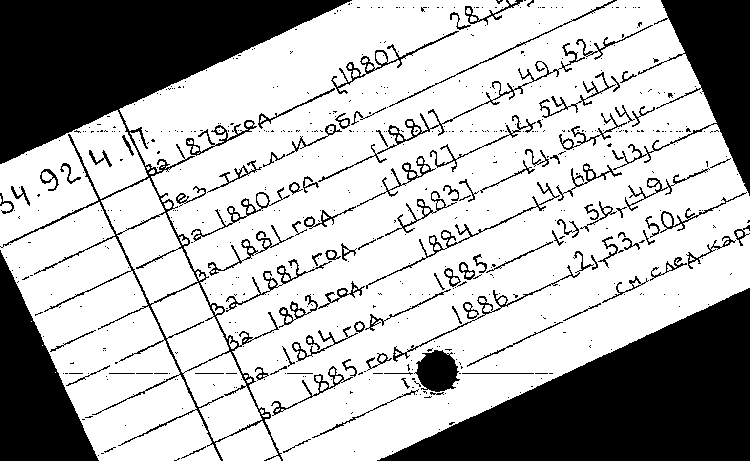 34.92 4.17.
за 1879 год. [1880]. 28,
Без тит. л. и обл.
за 1880 год. [1881]. [2], 49, [52] с.
за 1881 год [1882]. [2], 54, [47] с.
за 1882 год [1883]. [2], 65, [44] с.
за 1883 год. 1884. [4], 68, [43] с.
за 1884 год. 1885. [2], 56, [49] с.
за 1885 год. 1886. [2], 53, [50] с.
см. след. карт